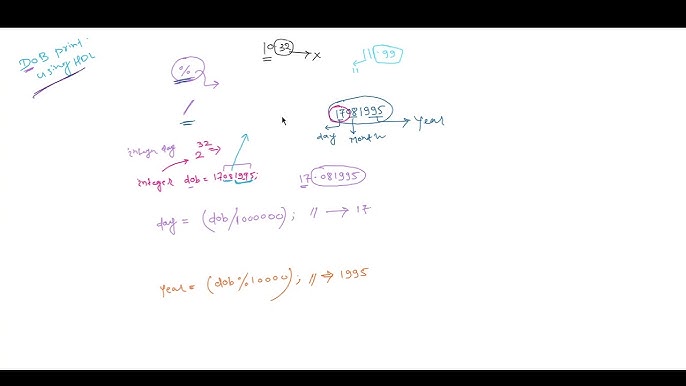 DoB print
using HDL
10.32 → x
11.99
11
%
/
17081995
day
month
year
integer day
2^32 ⇒
integer dob = 17081995;
17.081995
day = (dob/1000000); // → 17
year = (dob%10000); // ⇒ 1995